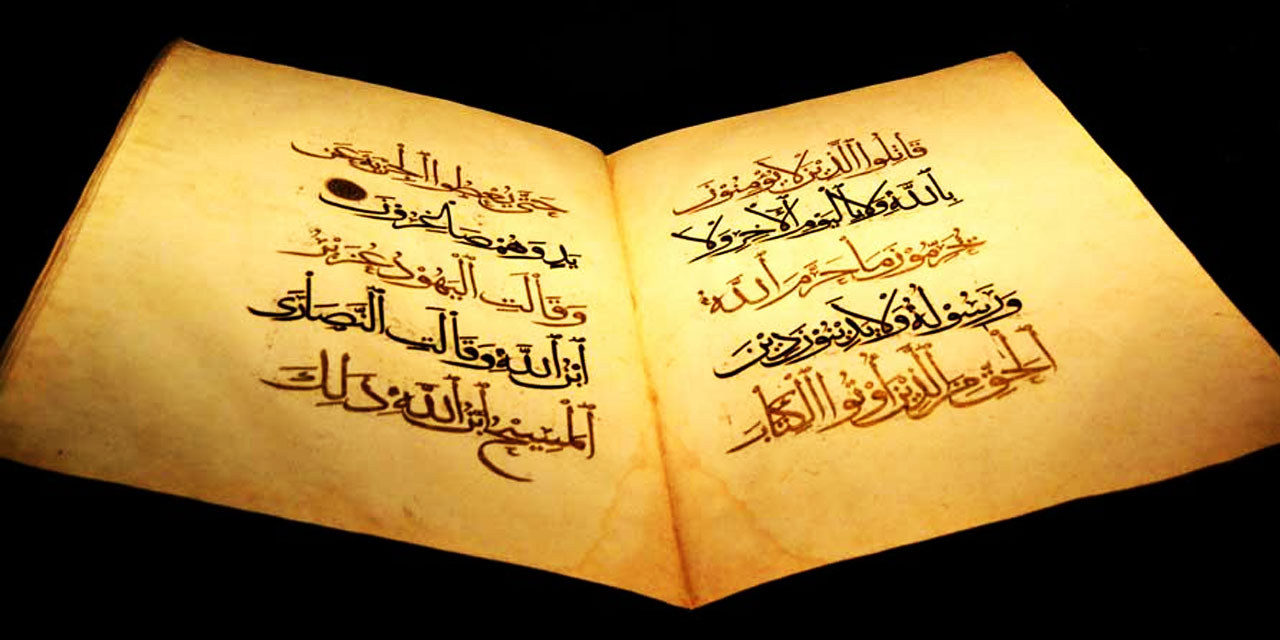 قَاتِلُوا الَّذِينَ لَا يُؤْمِنُونَ
بِاللَّهِ وَلَا بِالْيَوْمِ الْآخِرِ وَلَا
يُحَرِّمُونَ مَا حَرَّمَ اللَّهُ
وَرَسُولُهُ وَلَا يَدِينُونَ دِينَ
الْحَقِّ مِنَ الَّذِينَ أُوتُوا الْكِتَابَ
حَتَّى يُعْطُوا الْجِزْيَةَ عَن
يَدٍ وَهُمْ صَاغِرُونَ
وَقَالَتِ الْيَهُودُ عُزَيْرٌ
ابْنُ اللَّهِ وَقَالَتِ النَّصَارَى
الْمَسِيحُ ابْنُ اللَّهِ ذَلِكَ